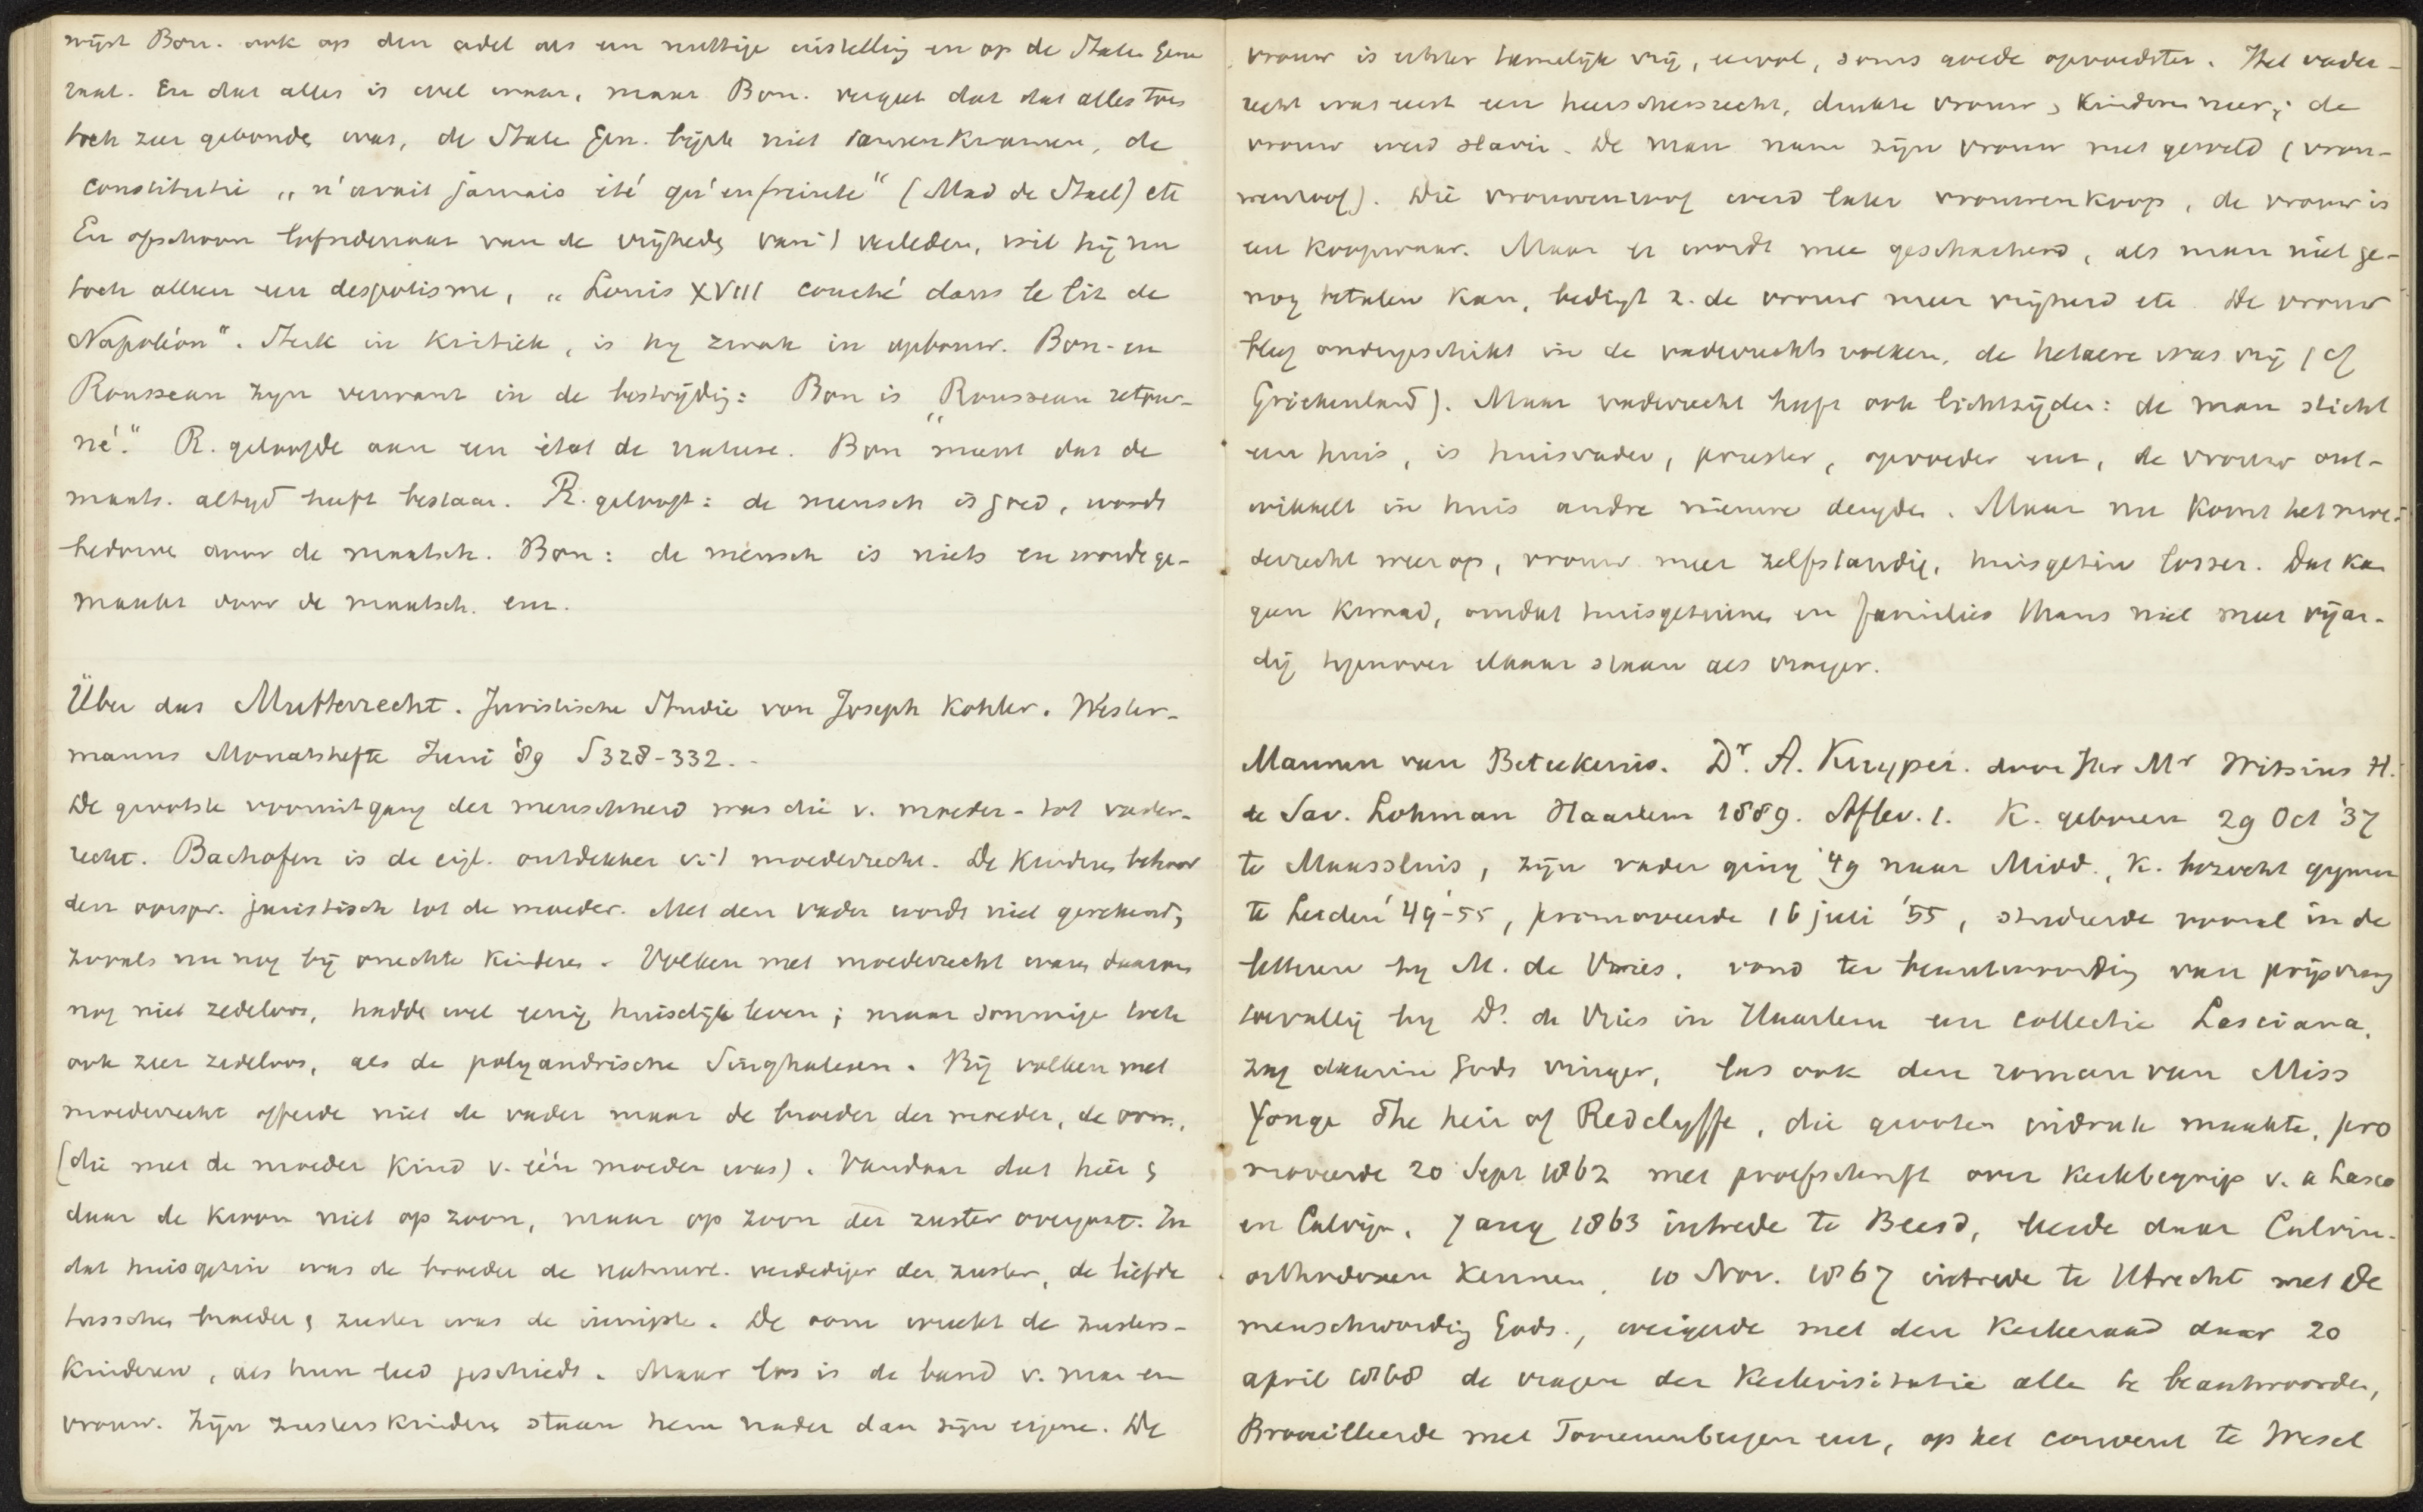 wijst Bon. ook op den adel als een nuttige instelling en op de Staten Gene
raal. En dat alles is wel waar, maar Bon. vergeet dat dat alles toen
toch zeer gebonden was, de Staten Gen. bijna niet samenkwamen, de
constitutie „n'avait jamais été qu'enfreinte" (Mad de Stael) etc
En ofschoon lofredenaar van de vrijheden van 't verleden, wil hij nu
toch alleen een despotisme, „Louis XVIII couché dans le lit de
Napoléon". Sterk in kritiek, is hy zwak in opbouw. Bon. en
Rousseau zyn verwant in de bestrijding: Bon is „Rousseau retour-
né." R. geloofde aan een état de nature. Bon meent dat de
maats. altyd heeft bestaan. R. gelooft: de mensch is goed, wordt
bedorven door de maatsch. Bon: de mensch is niets en wordt ge-
maakt door de maatsch. enz.
Über das Mutterrecht. Juristische Studie von Joseph Kohler. Wester-
manns Monatshefte Juni '89 S 328-332.
De grootste vooruitgang der menschheid was die v. moeder- tot vader-
recht. Bachofen is de eigl. ontdekker v. 't moederrecht. De kinderen behoor
den oorspr. juristisch tot de moeder. Met den vader wordt niet gerekend,
zooals nu nog bij onechte kinderen. Volken met moederrecht waren daarom
nog niet zedeloos, hadden wel eenig huiselijk leven; maar sommige toch
ook zeer zedeloos, als de polyandrische Singhalesen. Bij volken met
moederrecht offerde niet de vader maar de broeder der moeder, de oom,
(die met de moeder kind v. één moeder was). Vandaar dat hier en
daar de kroon niet op zoon, maar op zoon der zuster overgaat. In
dat huisgezin was de broeder de natuurl. verdediger der zuster, de liefde
tusschen broeder en zuster was de innigste. De oom wreekt de zusters-
kinderen, als hun leed geschiedt. Maar los is de band v. man en
vrouw. Zijn zusterskinderen staan hem nader dan zijn eigene. De
vrouw is echter tamelijk vrij, soms goede opvoedster. Het vader-
recht was eerst een heerschersrecht, drukte vrouw en kinderen neer; de
vrouw werd slavin. De man nam zijn vrouw met geweld (vrou-
wenroof). Die vrouwenroof werd later vrouwenkoop, de vrouw is
een koopwaar. Maar er wordt mee geschacherd, als man niet ge-
noeg betalen kan, bedingt z. de vrouw meer vrijheid etc. De vrouw
bleef ondergeschikt in de vaderrechts volken, de hetaere was vrij (cf
Griekenland). Maar vaderrecht heeft ook lichtzijden: de man sticht
een huis, is huisvader, priester, opvoeder enz, de vrouw ont-
wikkelt in huis andre nieuwe deugden. Maar nu komt het moe-
derrecht weer op, vrouw meer zelfstandig, huisgezin losser. Dat kan
geen kwaad, omdat huisgezinnen en families thans niet meer vijan-
dig tegenover elkaar staan als vroeger.
Mannen van Beteekenis. Dr. A. Kuyper. door Jhr Mr Witsius H.
de Sav. Lohman Haarlem 1889. Aflev. 1. K. geboren 29 Oct '37
te Maassluis, zijn vader ging '49 naar Midd., K. bezocht gymn
te Leiden '49-'55, promoveerde 16 juli '55, studeerde vooral in de
letteren by M. de Vries. vond ter beantwoording van prijsvraag
toevallig by Ds. de Vries in Haarlem een collectie Lasciana,
zag daarin Gods vinger, las ook den roman van Miss
Yonge The heir of Redclyffe, die grooten indruk maakte, pro
moveerde 20 Sept 1862 met proefschrift over Kerkbegrip v. a Lasco
en Calvijn. 7 aug 1863 intrede te Beesd, leerde daar Calvin.
orthodoxen kennen. 10 Nov. 1867 intrede te Utrecht met De
menschwording Gods., weigerde met den Kerkeraad daar 20
april 1868 de vragen der Kerkvisitatie alle te beantwoorden,
Brouilleerde met Toorenenbergen enz, op het convent te Wesel